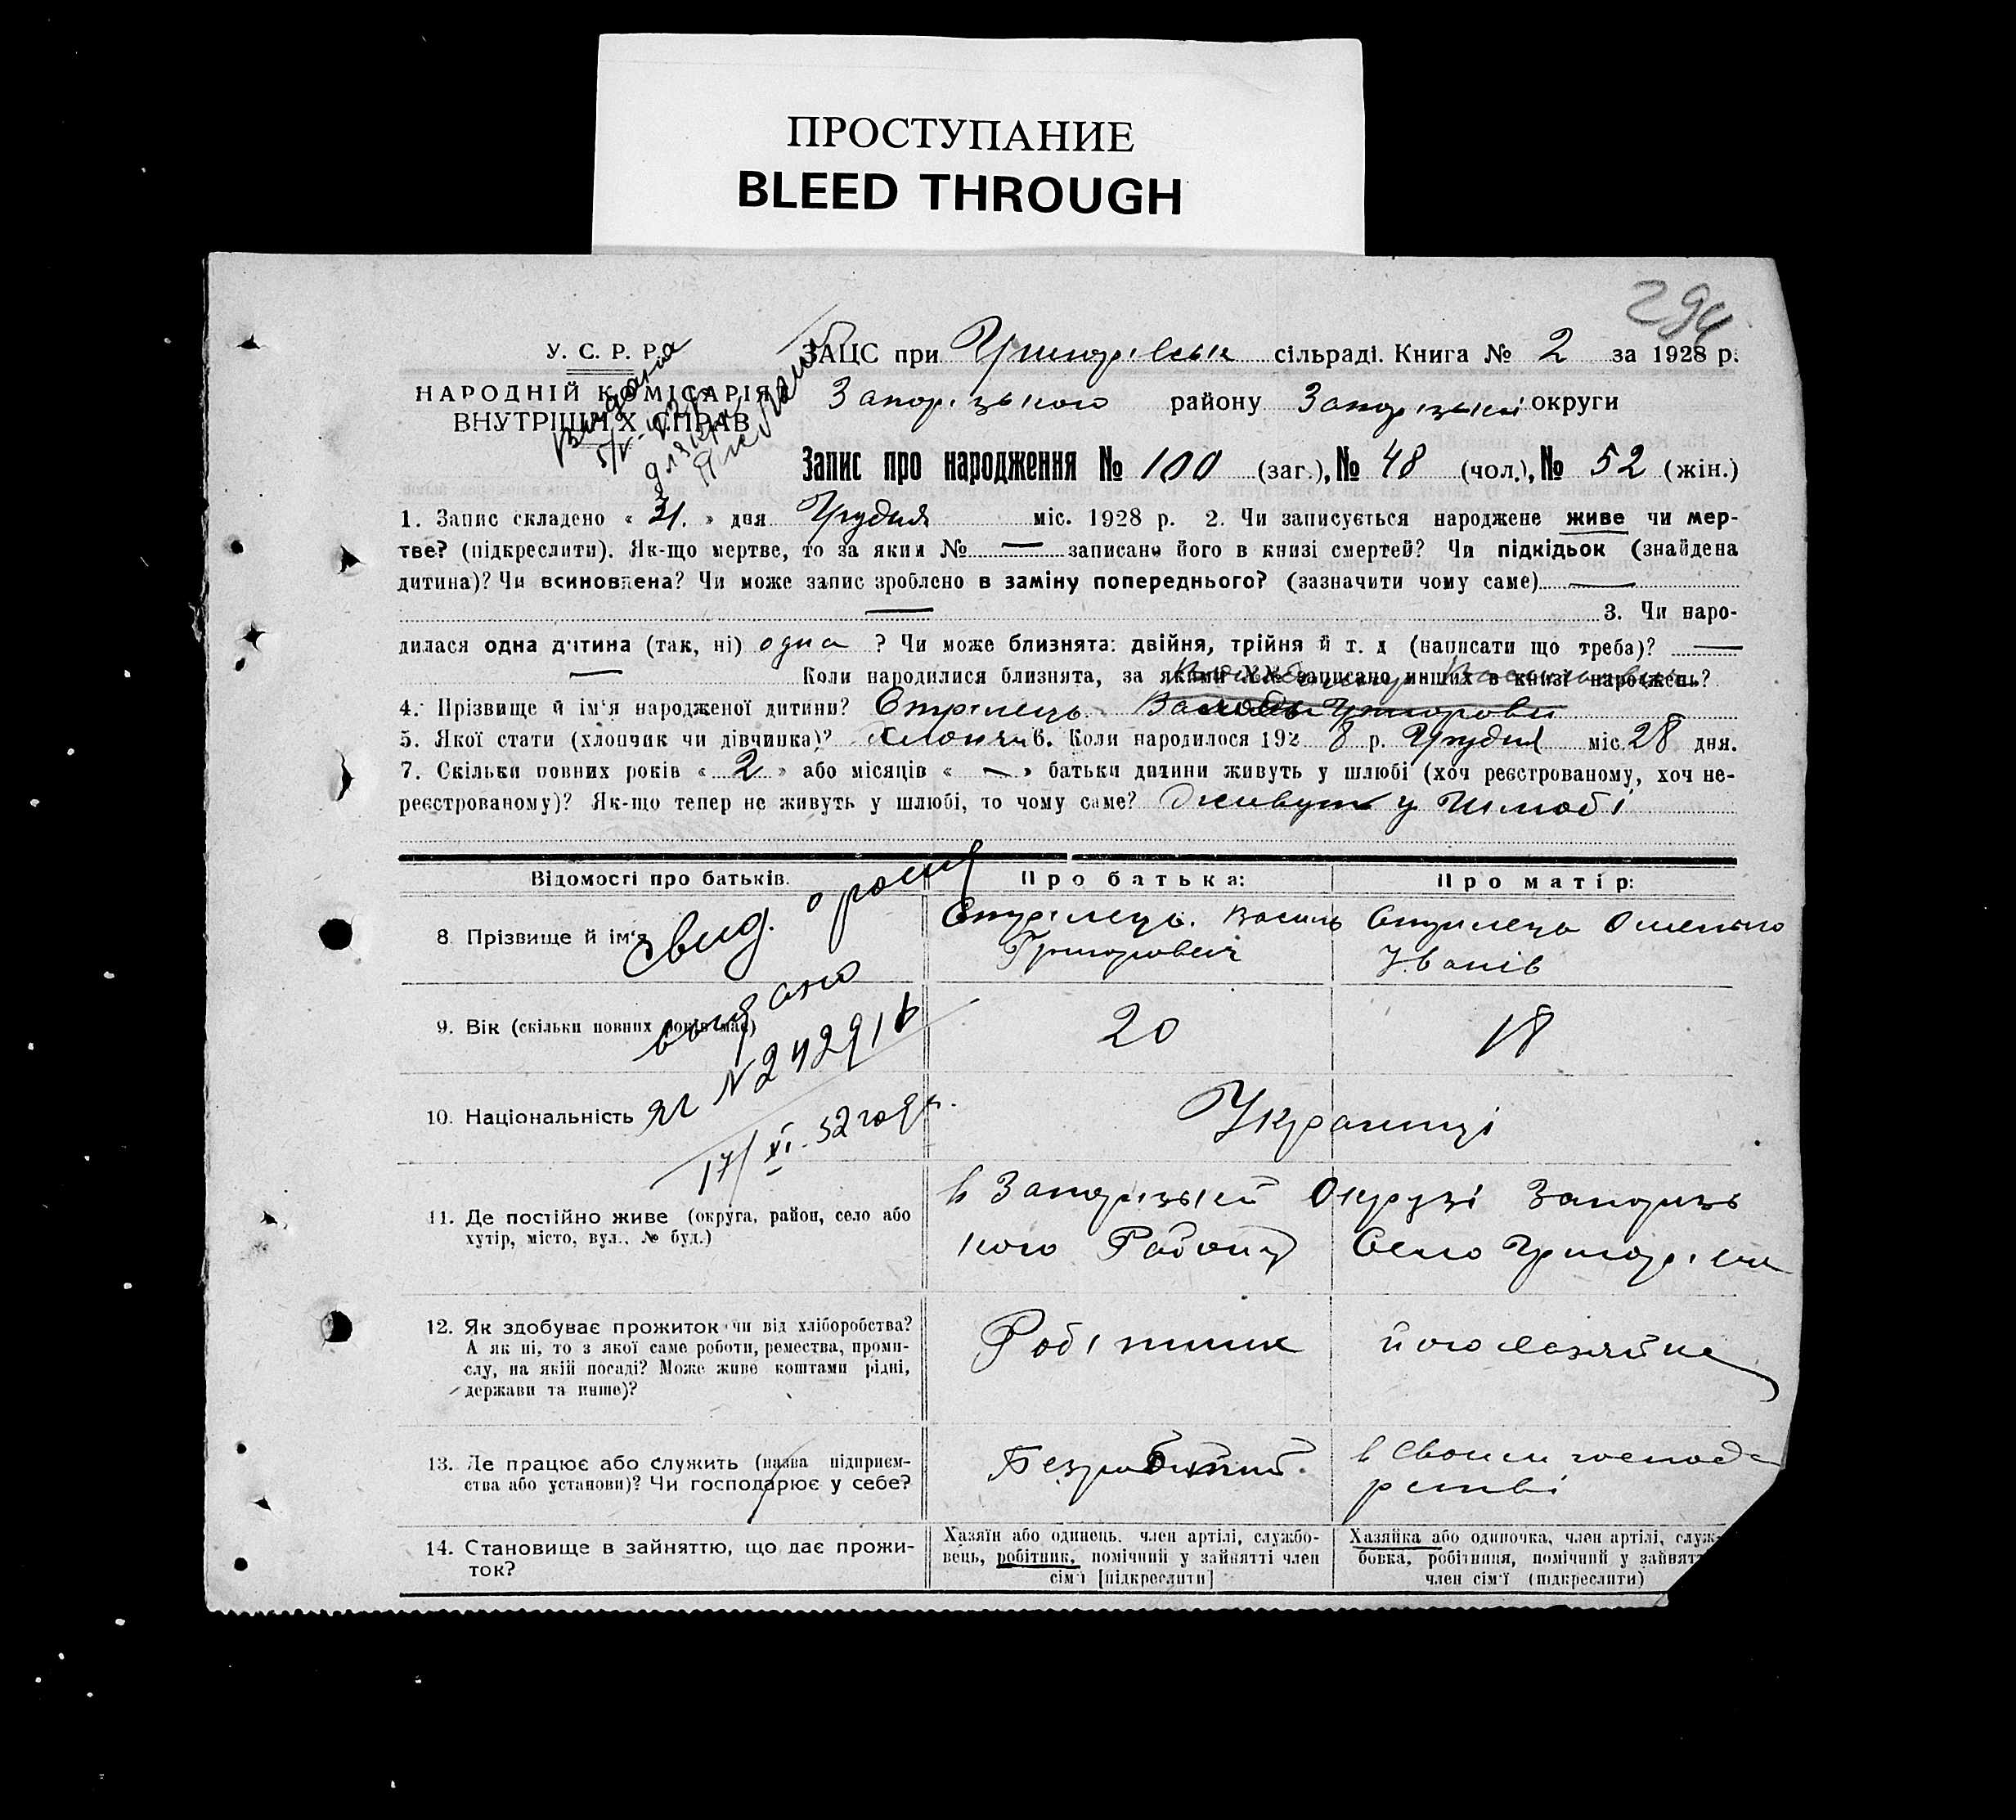 ПРОСТУПАНИЕ
BLEED THROUGH
294
У. С. Р. Р.
НАРОДНІЙ КОМІСАРІЯТ
ВНУТРІШНІХ СПРАВ
Видана
ЗАЦС при Григорівськ сільраді. Книга № 2 за 1928 р.
Запорізького району Запорізької округи
Запис про народження № 100 (заг.), № 48 (чол.), № 52 (жін.)
1. Запис складено « 31. » дня Грудня міс. 1928 р. 2. Чи записується народжене живе чи мер-
тве? (підкреслити). Як-що мертве, то за яким № — записано його в книзі смертей? Чи підкідьок (знайдена
дитина)? Чи всиновлена? Чи може запис зроблено в заміну попереднього? (зазначити чому саме) —
— 3. Чи наро-
дилася одна дитина (так, ні) одна ? Чи може близнята: двійня, трійня й т. д (написати що треба)? —
— Коли народилися близнята, за якими №№ записано инших в книзі народжень?
4. Прізвище й ім'я народженої дитини? Стрілець
5. Якої статі (хлопчик чи дівчинка)? Хлопчи 6. Коли народилося 1928 р. Грудня міс. 28 дня.
7. Скільки повних років « 2 » або місяців « — » батьки дитини живуть у шлюбі (хоч реєстрованому, хоч не-
реєстрованому)? Як-що тепер не живуть у шлюбі, то чому саме? живуть у Шлюбі
Відомості про батьків. Про батька: Про матір:
8. Прізвище й ім'я Стрілець. Василь Григорович Стрилець Омелько Іванів
свид. о рожд
выдано
яг N 242916
17/XI-52 года.
9. Вік (скільки повних років має) 20 18
10. Національність Украинці
11. Де постійно живе (округа, район, село або
хутір, місто, вул., № буд.)
в Запорізькій Окрузі Запоризь
кого Району Село Григорівка
12. Як здобуває прожиток чи від хліборобства?
А як ні, то з якої саме роботи, ремества, проми-
слу, на якій посаді? Може живе коштами рідні,
держави та инше)?
Робітник
13. Де працює або служить (назва підприєм-
ства або установи)? Чи господарює у себе?
Безробітний.
в своим господа
рстві
14. Становище в зайняттю, що дає прожи-
ток?
Хазяїн або одинець, член артілі, службо-
вець, робітник, помічний у зайнятті член
сім'ї [підкреслити]
Хазяйка або одиночка, член артілі, служ-
бовка, робітниця, помічний у зайнятт
член сім'ї (підкреслити)